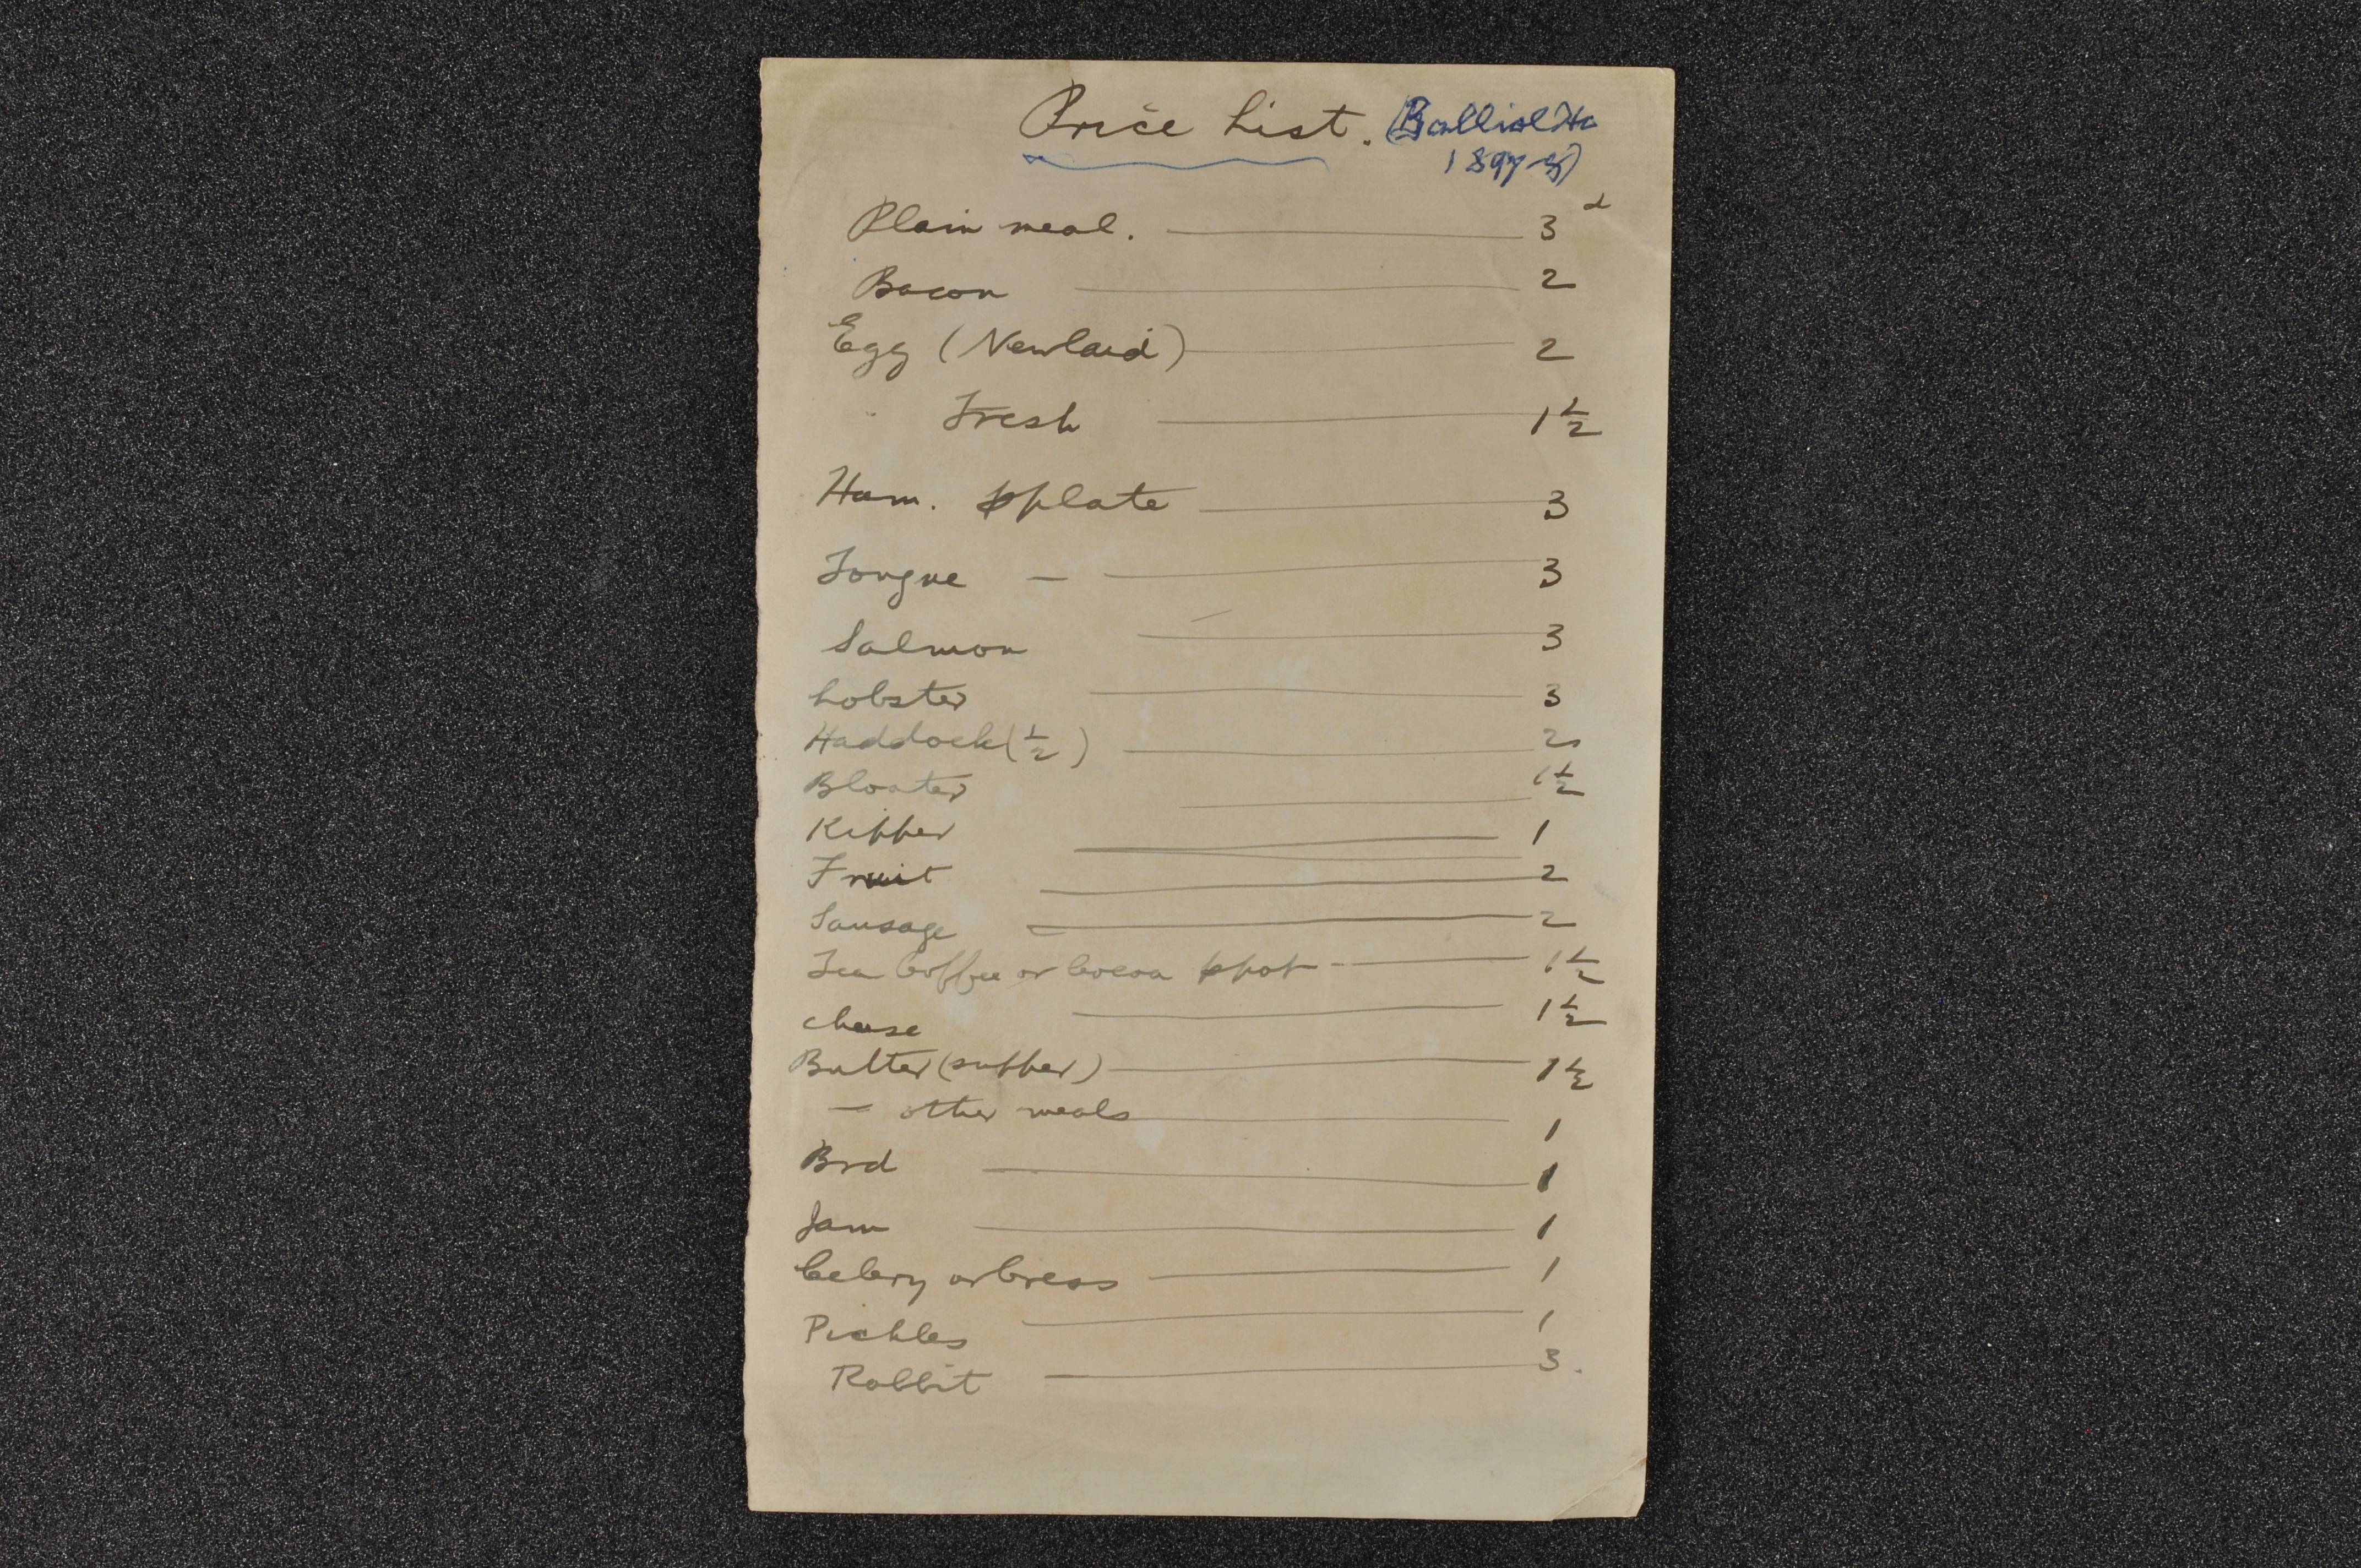 Price List. (Balliol Ho
1897-8)
Plain meal. 3 d
Bacon 2
Egg (Newlaid) 2
Fresh 1 1/2
Ham. p plate 3
Tongue — 3
Salmon 3
Lobster 3
Haddock (1/2) 2
Bloater 1 1/2
Kipper 1
Fruit 2
Sausage 2
Tea Coffee or Cocoa p pot 1 1/2
cheese 1 1/2
Butter (supper) 1 1/2
— other meals 1
Brd 1
Jam 1
Celery or Cress 1
Pickles 1
Rabbit 3.